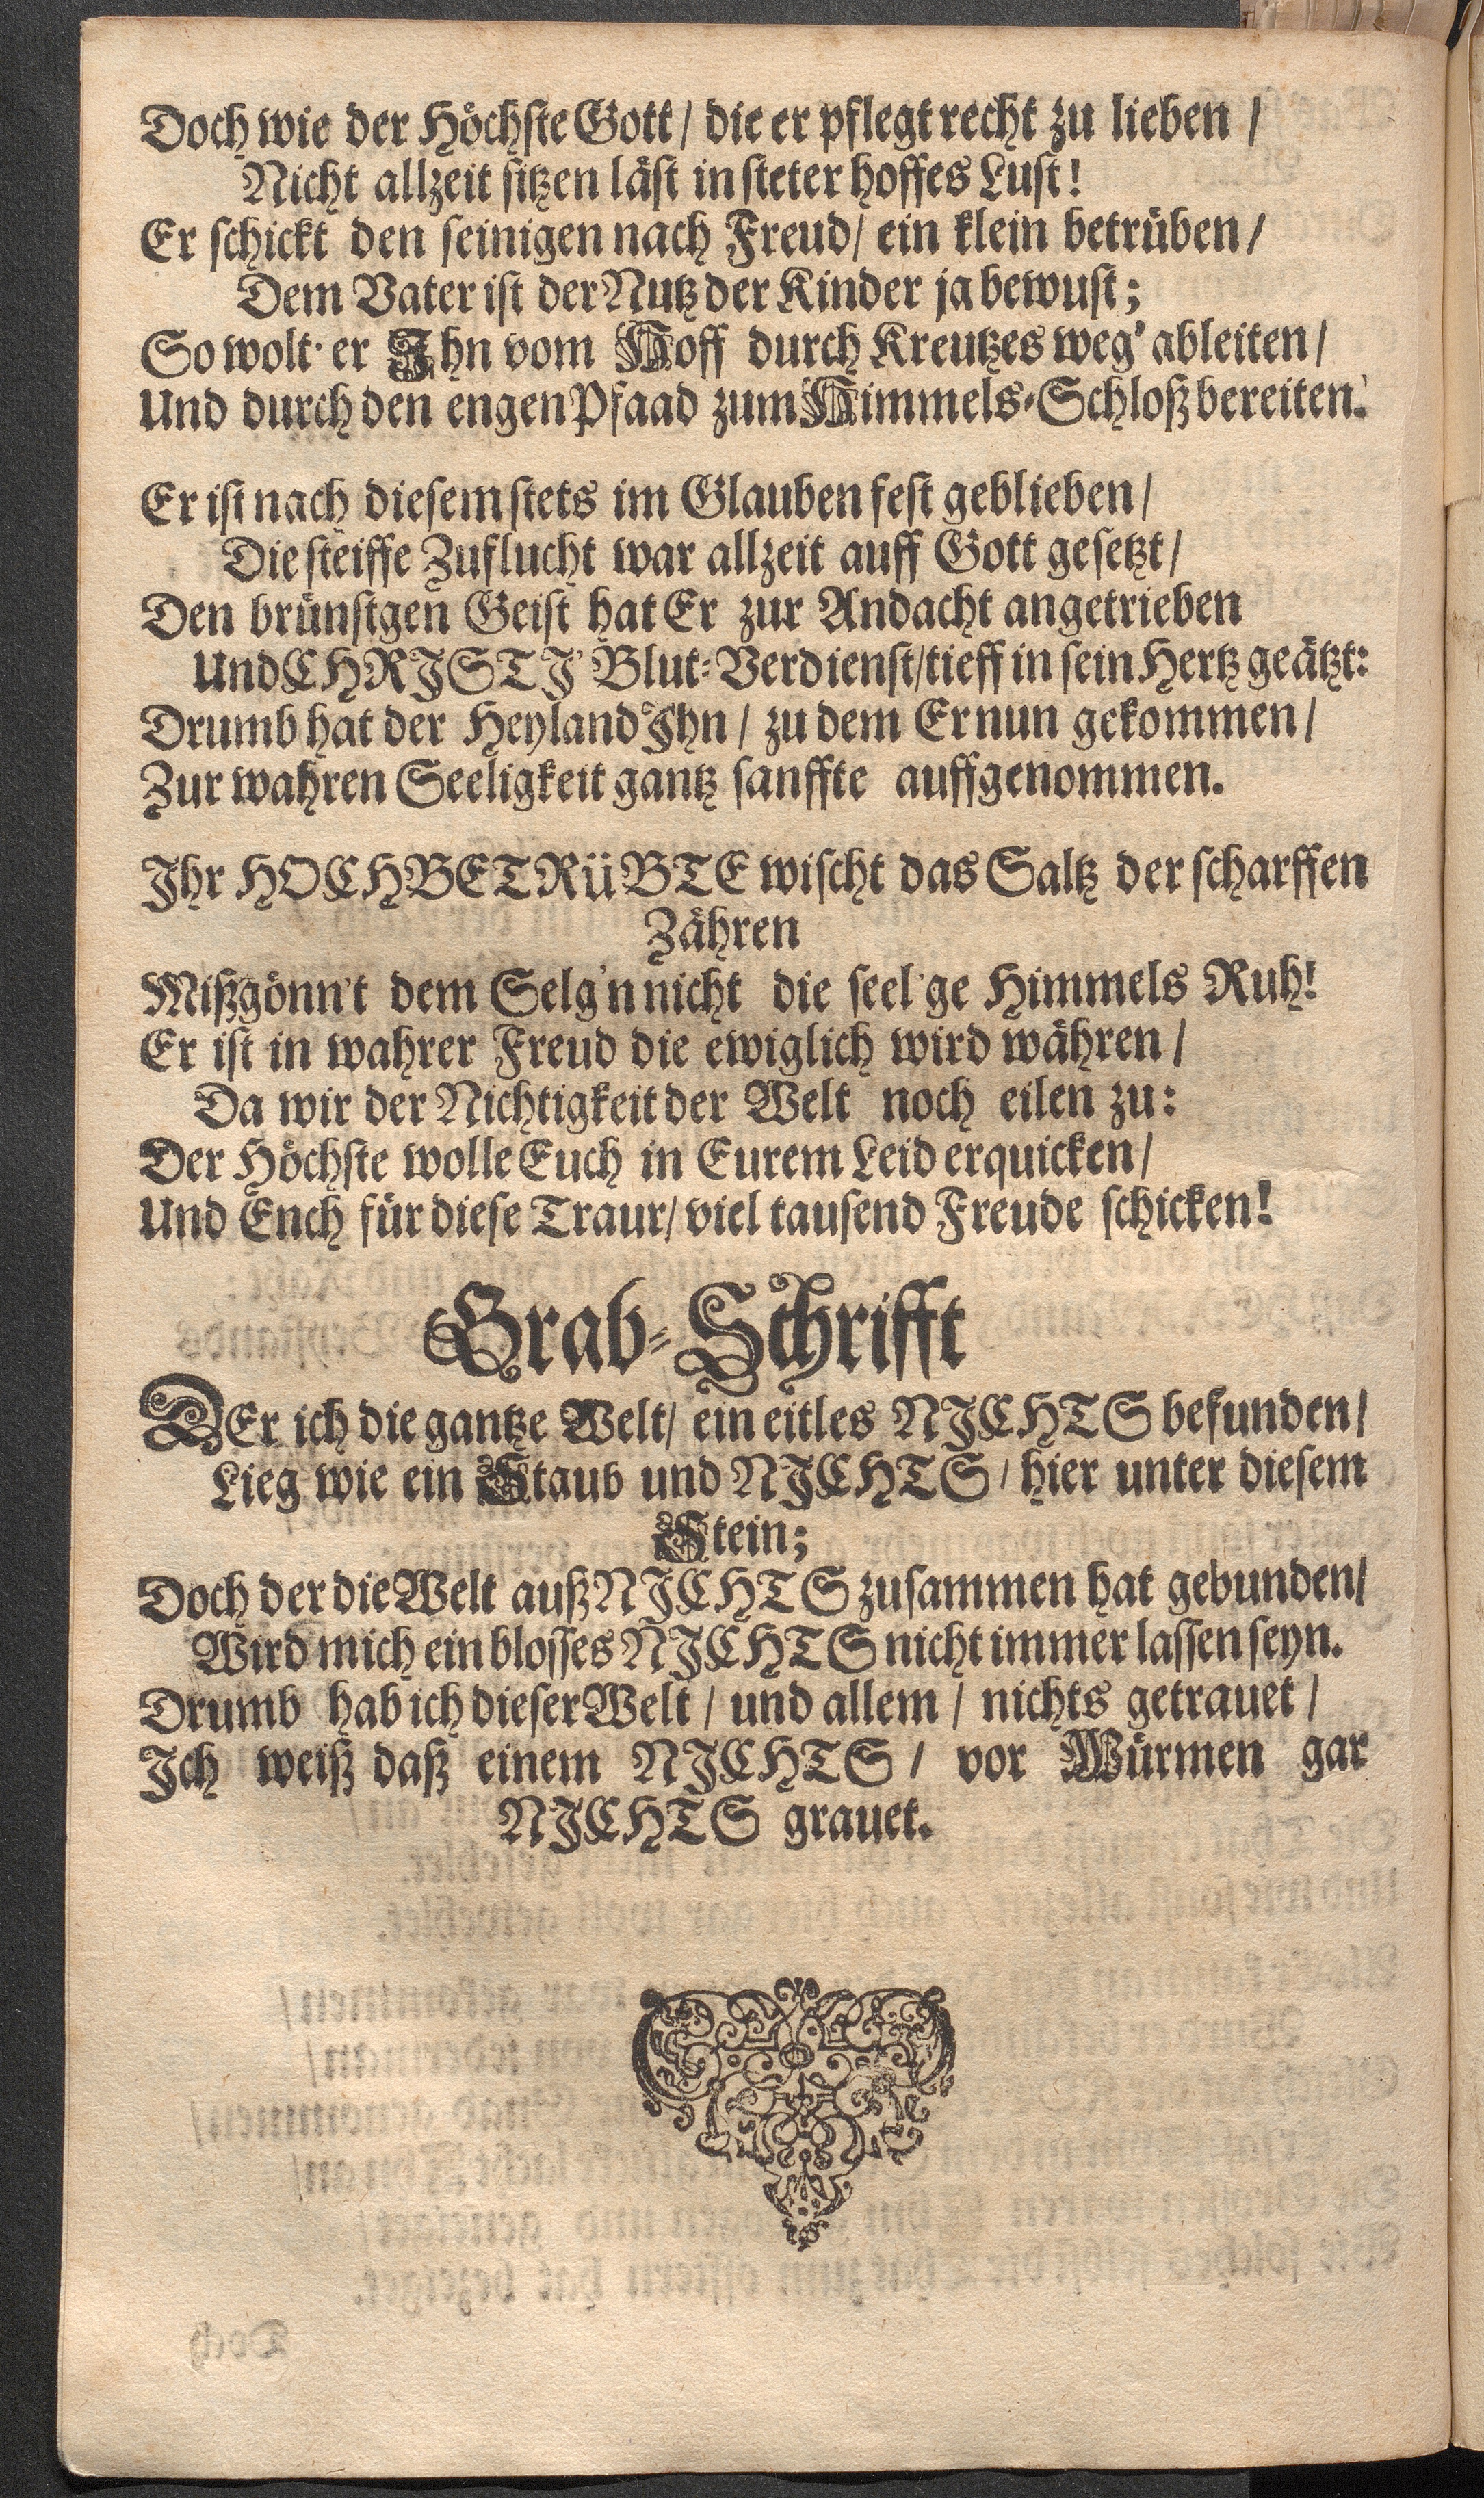 Doch wie der Höchste Gott / die er pflegt recht zu lieben /
Nicht allzeit sitzen läst in steter hoffes Lust!
Er schickt den seinigen nach Freud / ein klein betrüben /
Dem Vater ist der Nutz der Kinder ja bewust;
So wolt' er Ihn vom Hoff durch Kreutzes weg' ableiten /
Und durch den engen Pfaad zum Himmels-Schloß bereiten.
Er ist nach diesem stets im Glauben fest geblieben /
Die steiffe Zuflucht war allzeit auff Gott gesetzt /
Den brünstgen Geist hat Er zur Andacht angetrieben
Und CHRISTI Blut-Verdienst / tieff in sein Hertz geätzt:
Drumb hat der Heyland Ihn / zu dem Er nun gekommen /
Zur wahren Seeligkeit gantz sanffte auffgenommen.
Ihr HOCHBETRüBTE wischt das Saltz der scharffen
Zähren
Mißgönn't dem Selg'n nicht die seel'ge Himmels Ruh!
Er ist in wahrer Freud die ewiglich wird währen /
Da wir der Nichtigkeit der Welt noch eilen zu:
Der Höchste wolle Euch in Eurem Leid erquicken /
Und Ench für diese Traur / viel tausend Freude schicken!
Grab-Schrifft
DEr ich die gantze Welt / ein eitles NICHTS befunden /
Lieg wie ein Staub und NICHTS / hier unter diesem
Stein;
Doch der die Welt auß NICHTS zusammen hat gebunden /
Wird mich ein blosses NICHTS nicht immer lassen seyn.
Drumb hab ich dieser Welt / und allem / nichts getrauet /
Ich weiß daß einem NICHTS / vor Würmen gar
NICHTS grauet.